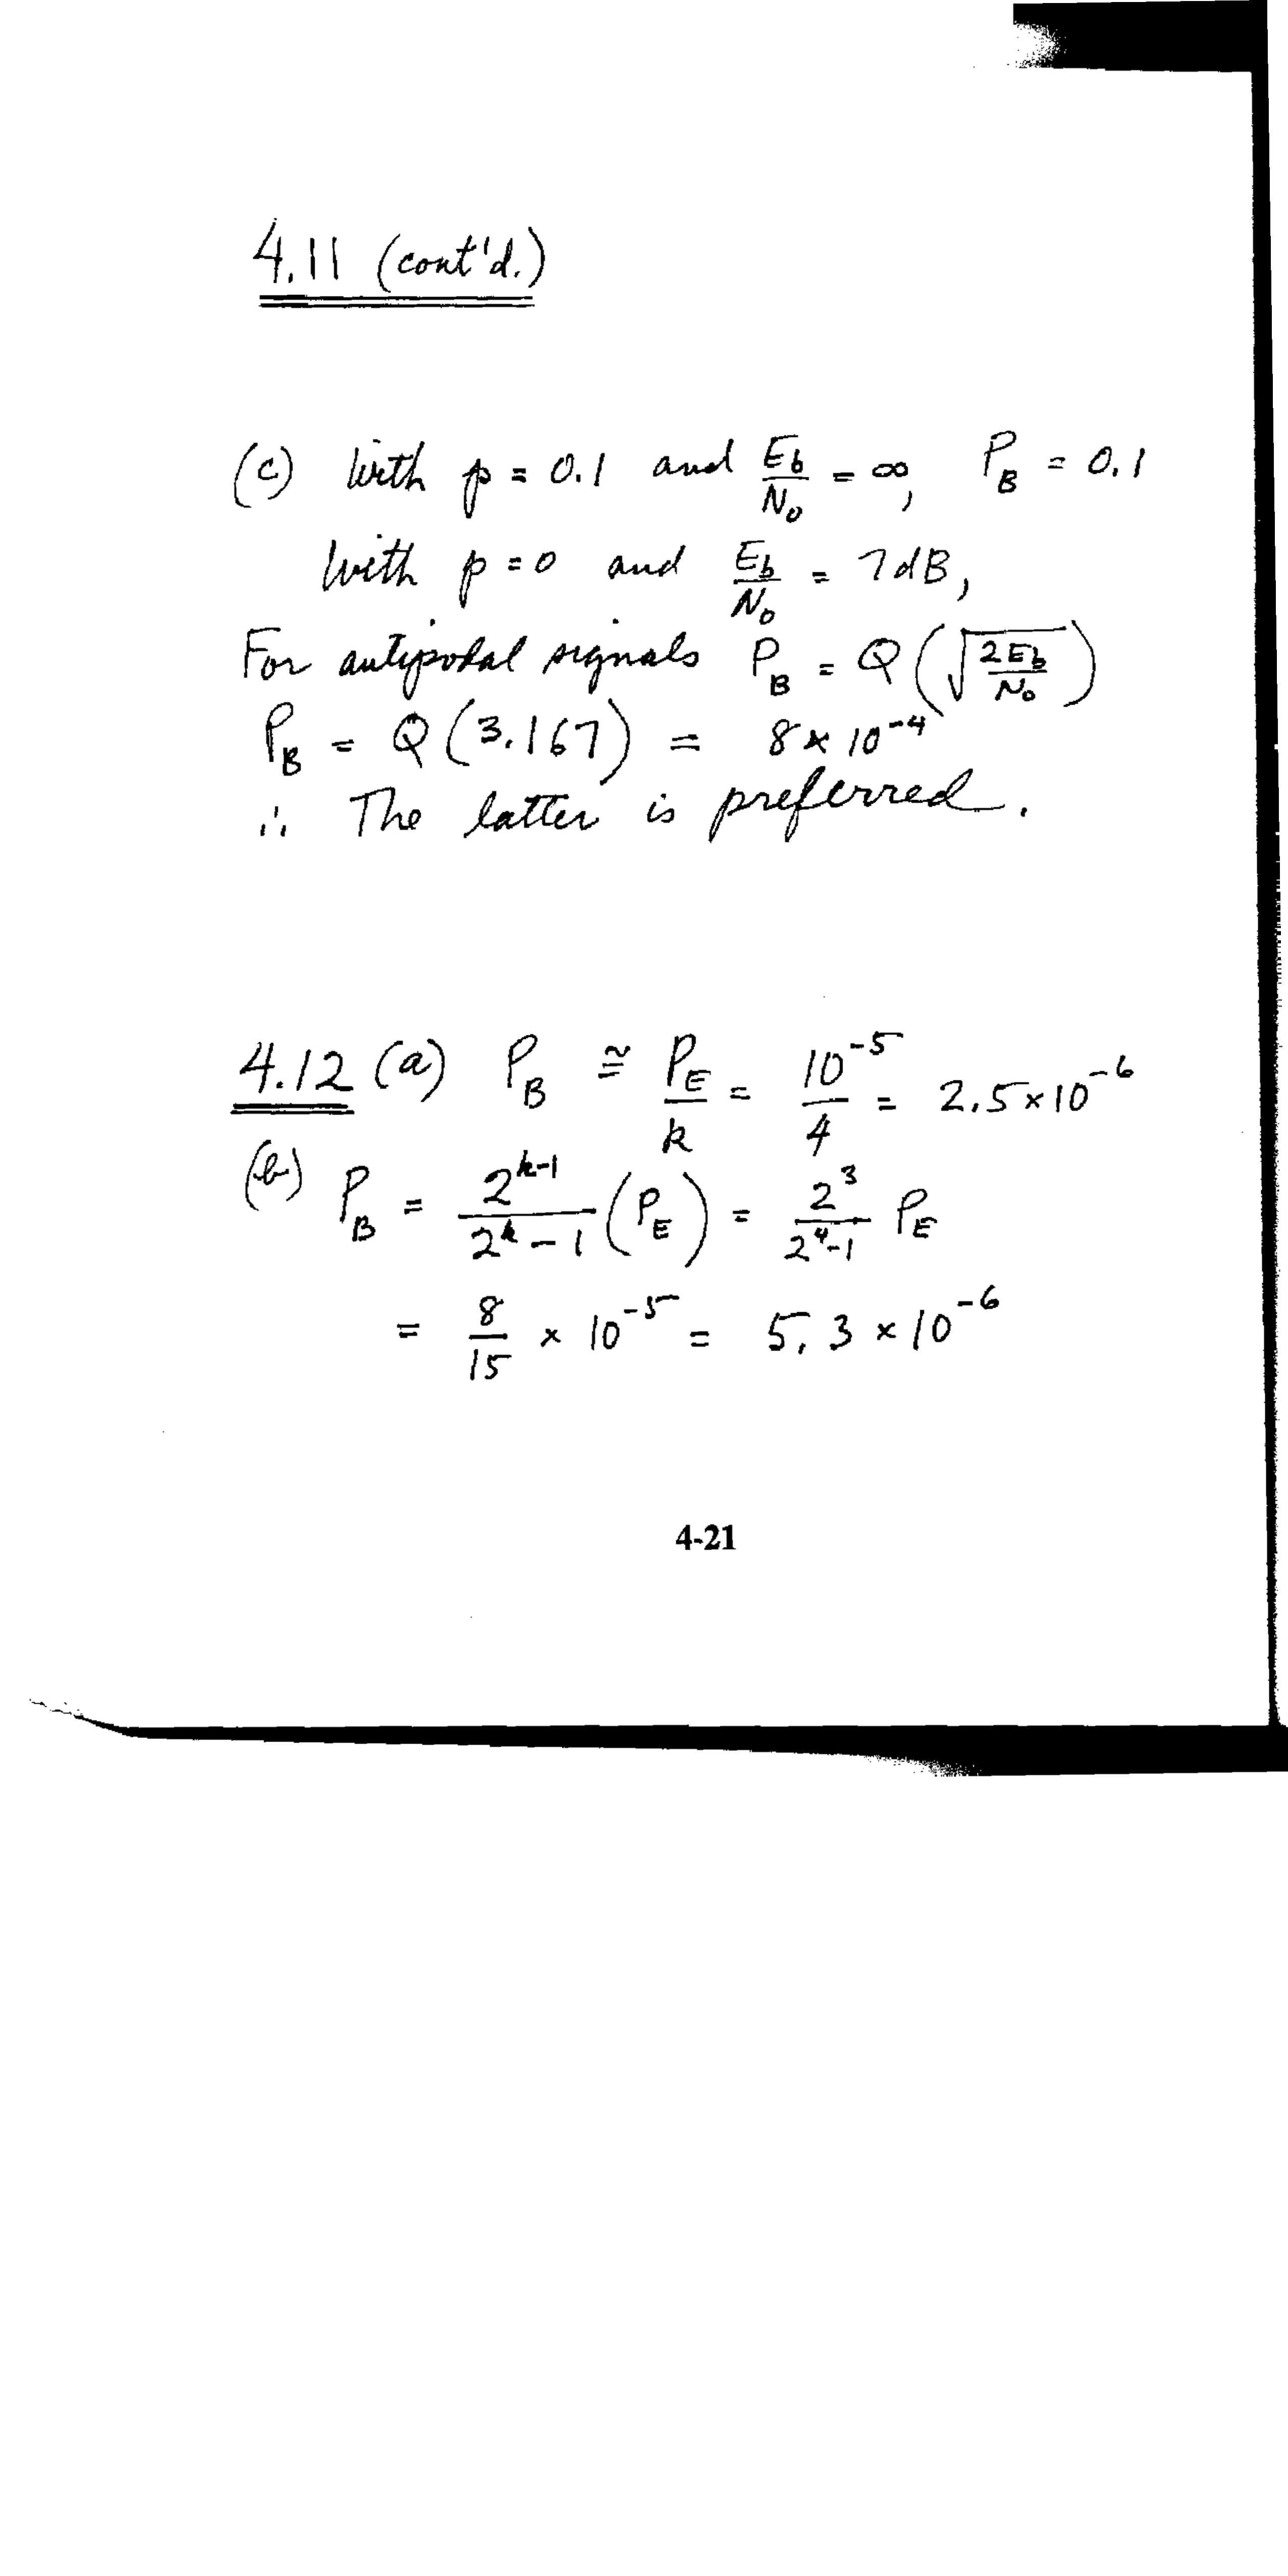 4.11 (cont'd.)
(c) With p = 0.1 and Eb/N₀ = ∞, P_B = 0.1
With p = 0 and Eb/N₀ = 7dB,
For antipodal signals P_B = Q(√(2Eb/N₀))
P_B = Q(3.167) = 8 × 10⁻⁴
∴ The latter is preferred.
4.12 (a) P_B ≅ P_E/k = 10⁻⁵/4 = 2.5×10⁻⁶
(b) P_B = 2^(k-1)/(2^k - 1) (P_E) = 2³/(2⁴-1) P_E
= 8/15 × 10⁻⁵ = 5.3 × 10⁻⁶
4-21